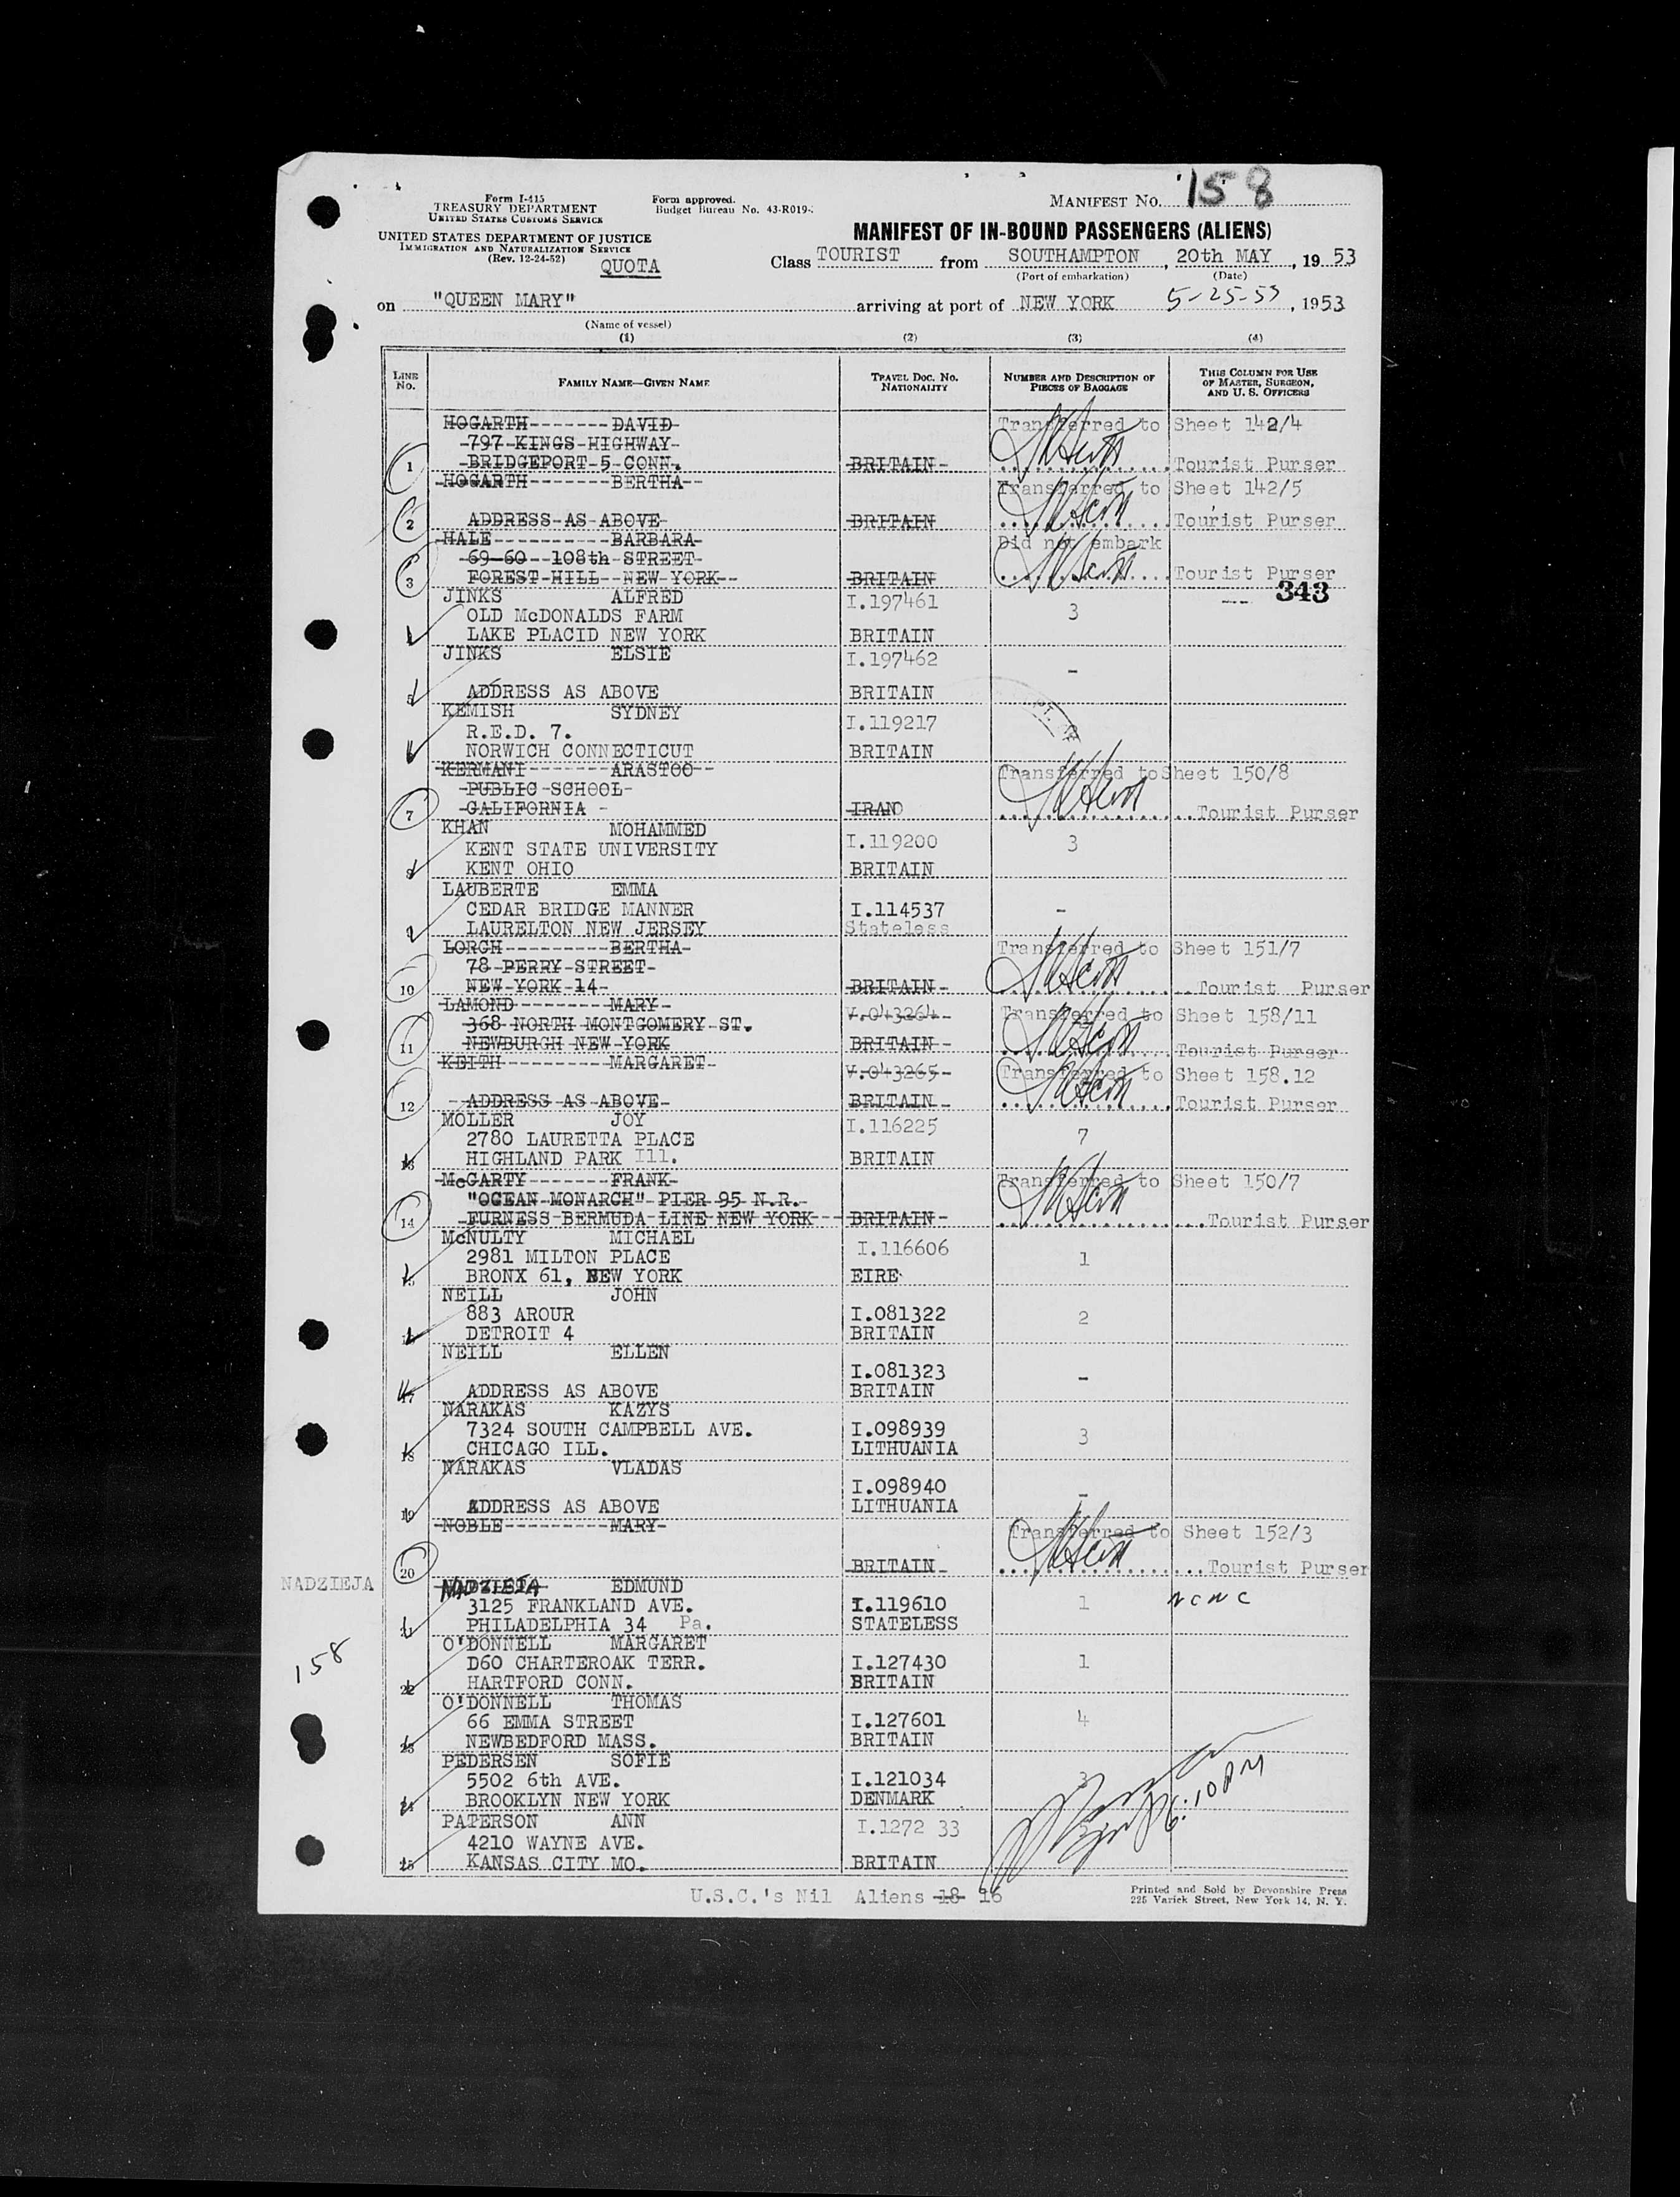 Form I-415
TREASURY DEPARTMENT
UNITED STATES CUSTOMS SERVICE
Form approved.
Budget Bureau No. 43-R019-
MANIFEST NO. 158
UNITED STATES DEPARTMENT OF JUSTICE
IMMIGRATION AND NATURALIZATION SERVICE
(Rev. 12-24-52)
QUOTA
MANIFEST OF IN-BOUND PASSENGERS (ALIENS)
Class TOURIST from SOUTHAMPTON, 20th MAY, 1953
(Port of embarkation) (Date)
on "QUEEN MARY" arriving at port of NEW YORK 5-25-53, 1953
(Name of vessel)
(1) (2) (3) (4)
LINE No. FAMILY NAME—GIVEN NAME TRAVEL DOC. NO. NATIONALITY NUMBER AND DESCRIPTION OF PIECES OF BAGGAGE THIS COLUMN FOR USE OF MASTER, SURGEON, AND U. S. OFFICERS
HOGARTH-------DAVID- Transferred to Sheet 142/4
-797-KINGS-HIGHWAY-
1 -BRIDGEPORT-5-CONN. BRITAIN- Tourist Purser
-HOGARTH-------BERTHA-- Transferred to Sheet 142/5
2 ADDRESS-AS-ABOVE- BRITAIN Tourist Purser
-HALE----------BARBARA- Did not embark
-69-60--108th-STREET-
3 FOREST-HILL--NEW-YORK-- BRITAIN Tourist Purser
343
JINKS ALFRED I.197461 3
OLD McDONALDS FARM
LAKE PLACID NEW YORK BRITAIN
JINKS ELSIE I.197462 -
5 ADDRESS AS ABOVE BRITAIN
KEMISH SYDNEY I.119217
R.E.D. 7.
NORWICH CONNECTICUT BRITAIN
-KERMANI-------ARASTOO-- Transferred to Sheet 150/8
-PUBLIC-SCHOOL-
7 -CALIFORNIA - IRAN Tourist Purser
KHAN MOHAMMED I.119200 3
KENT STATE UNIVERSITY
8 KENT OHIO BRITAIN
LAUBERTE EMMA
CEDAR BRIDGE MANNER I.114537 -
9 LAURELTON NEW JERSEY Stateless
LORCH---------BERTHA- Transferred to Sheet 151/7
78-PERRY-STREET-
10 NEW-YORK-14- BRITAIN- Tourist Purser
-LAMOND--------MARY- V.043264- Transferred to Sheet 158/11
-368-NORTH-MONTGOMERY-ST.
11 NEWBURGH-NEW-YORK BRITAIN- Tourist Purser
-KEITH---------MARGARET- V.043265- Transferred to Sheet 158.12
12 --ADDRESS-AS-ABOVE- BRITAIN- Tourist Purser
MOLLER JOY I.116225 7
2780 LAURETTA PLACE
13 HIGHLAND PARK Ill. BRITAIN
-McCARTY-------FRANK- Transferred to Sheet 150/7
"OCEAN-MONARCH"-PIER-95-N.R.-
14 -FURNESS-BERMUDA-LINE-NEW-YORK-- BRITAIN- Tourist Purser
McNULTY MICHAEL I.116606 1
2981 MILTON PLACE
15 BRONX 61, NEW YORK EIRE
NEILL JOHN
883 AROUR I.081322 2
DETROIT 4 BRITAIN
NEILL ELLEN
I.081323 -
17 ADDRESS AS ABOVE BRITAIN
NARAKAS KAZYS
7324 SOUTH CAMPBELL AVE. I.098939 3
18 CHICAGO ILL. LITHUANIA
NARAKAS VLADAS
I.098940 -
19 ADDRESS AS ABOVE LITHUANIA
-NOBLE---------MARY- Transferred to Sheet 152/3
20 BRITAIN- Tourist Purser
NADZIEJA NADZIEJA EDMUND
3125 FRANKLAND AVE. I.119610 1 NCNC
PHILADELPHIA 34 Pa. STATELESS
O'DONNELL MARGARET
158 D60 CHARTEROAK TERR. I.127430 1
22 HARTFORD CONN. BRITAIN
O'DONNELL THOMAS
66 EMMA STREET I.127601 4
23 NEWBEDFORD MASS. BRITAIN
PEDERSEN SOFIE
5502 6th AVE. I.121034 3
24 BROOKLYN NEW YORK DENMARK
PATERSON ANN I.1272 33
4210 WAYNE AVE. 6:10 PM
25 KANSAS CITY MO. BRITAIN
U.S.C.'s Nil Aliens 18 16
Printed and Sold by Devonshire Press
225 Varick Street, New York 14, N. Y.